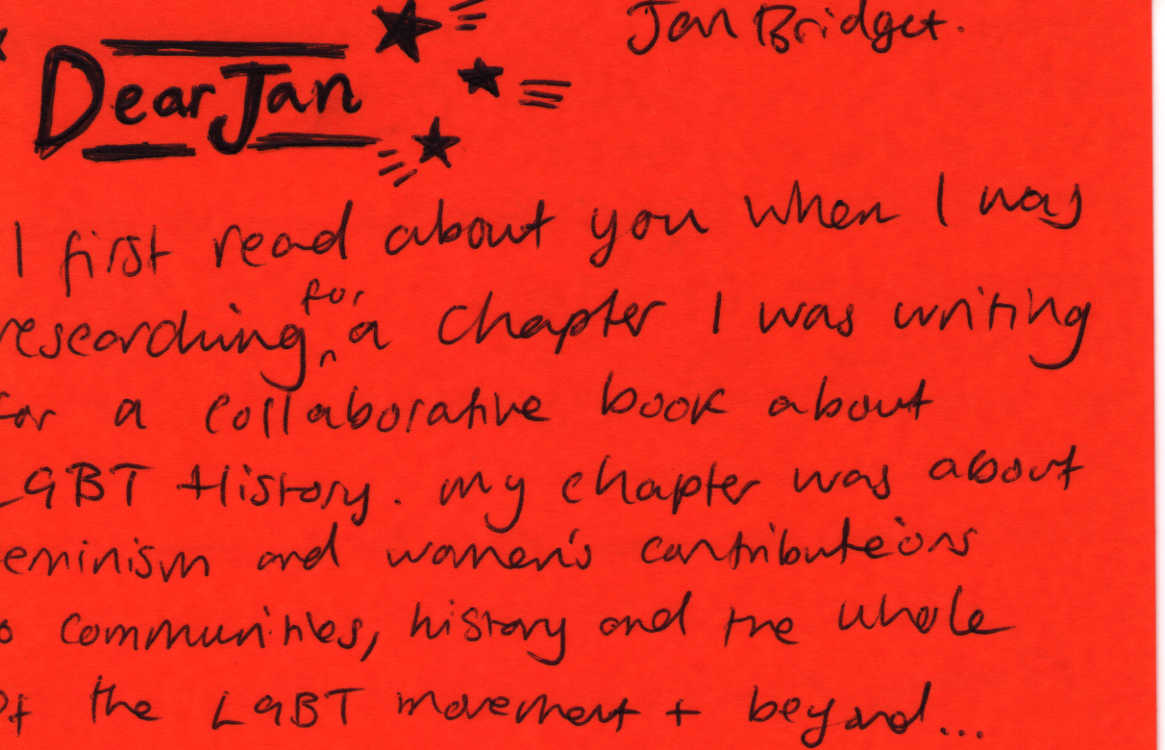 Jan Bridget.
Dear Jan
I first read about you when I was
researching for a chapter I was writing
for a collaborative book about
LGBT History. My chapter was about
feminism and women's contributions
to communities, history and the whole
of the LGBT movement + beyond...